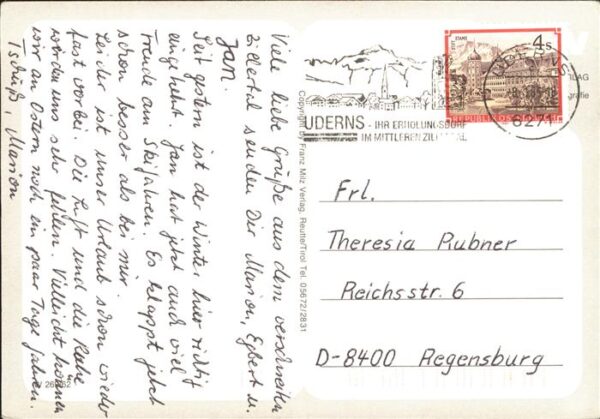 Viele liebe Grüße aus dem verschneiten
Zillertal senden Dir Marion, Egbert u.
Jan.
Seit gestern ist der Winter hier richtig
eingekehrt. Jan hat jetzt auch viel
Freude am Skifahren. Es klappt jetzt
schon besser als bei mir.
Leider ist unser Urlaub schon wieder
fast vorbei. Die Luft und die Ruhe
werden uns sehr fehlen. Vielleicht können
wir an Ostern noch ein paar Tage fahren.
Tschüß, Marion
Copyright by Franz Milz Verlag, Reutte/Tirol Tel. 05672/2831
STIFT STAMS
4 S
REPUBLIK
6271
UDERNS - IHR ERHOLUNGSDORF
IM MITTLEREN
Frl.
Theresia Rubner
Reichsstr. 6
D-8400 Regensburg